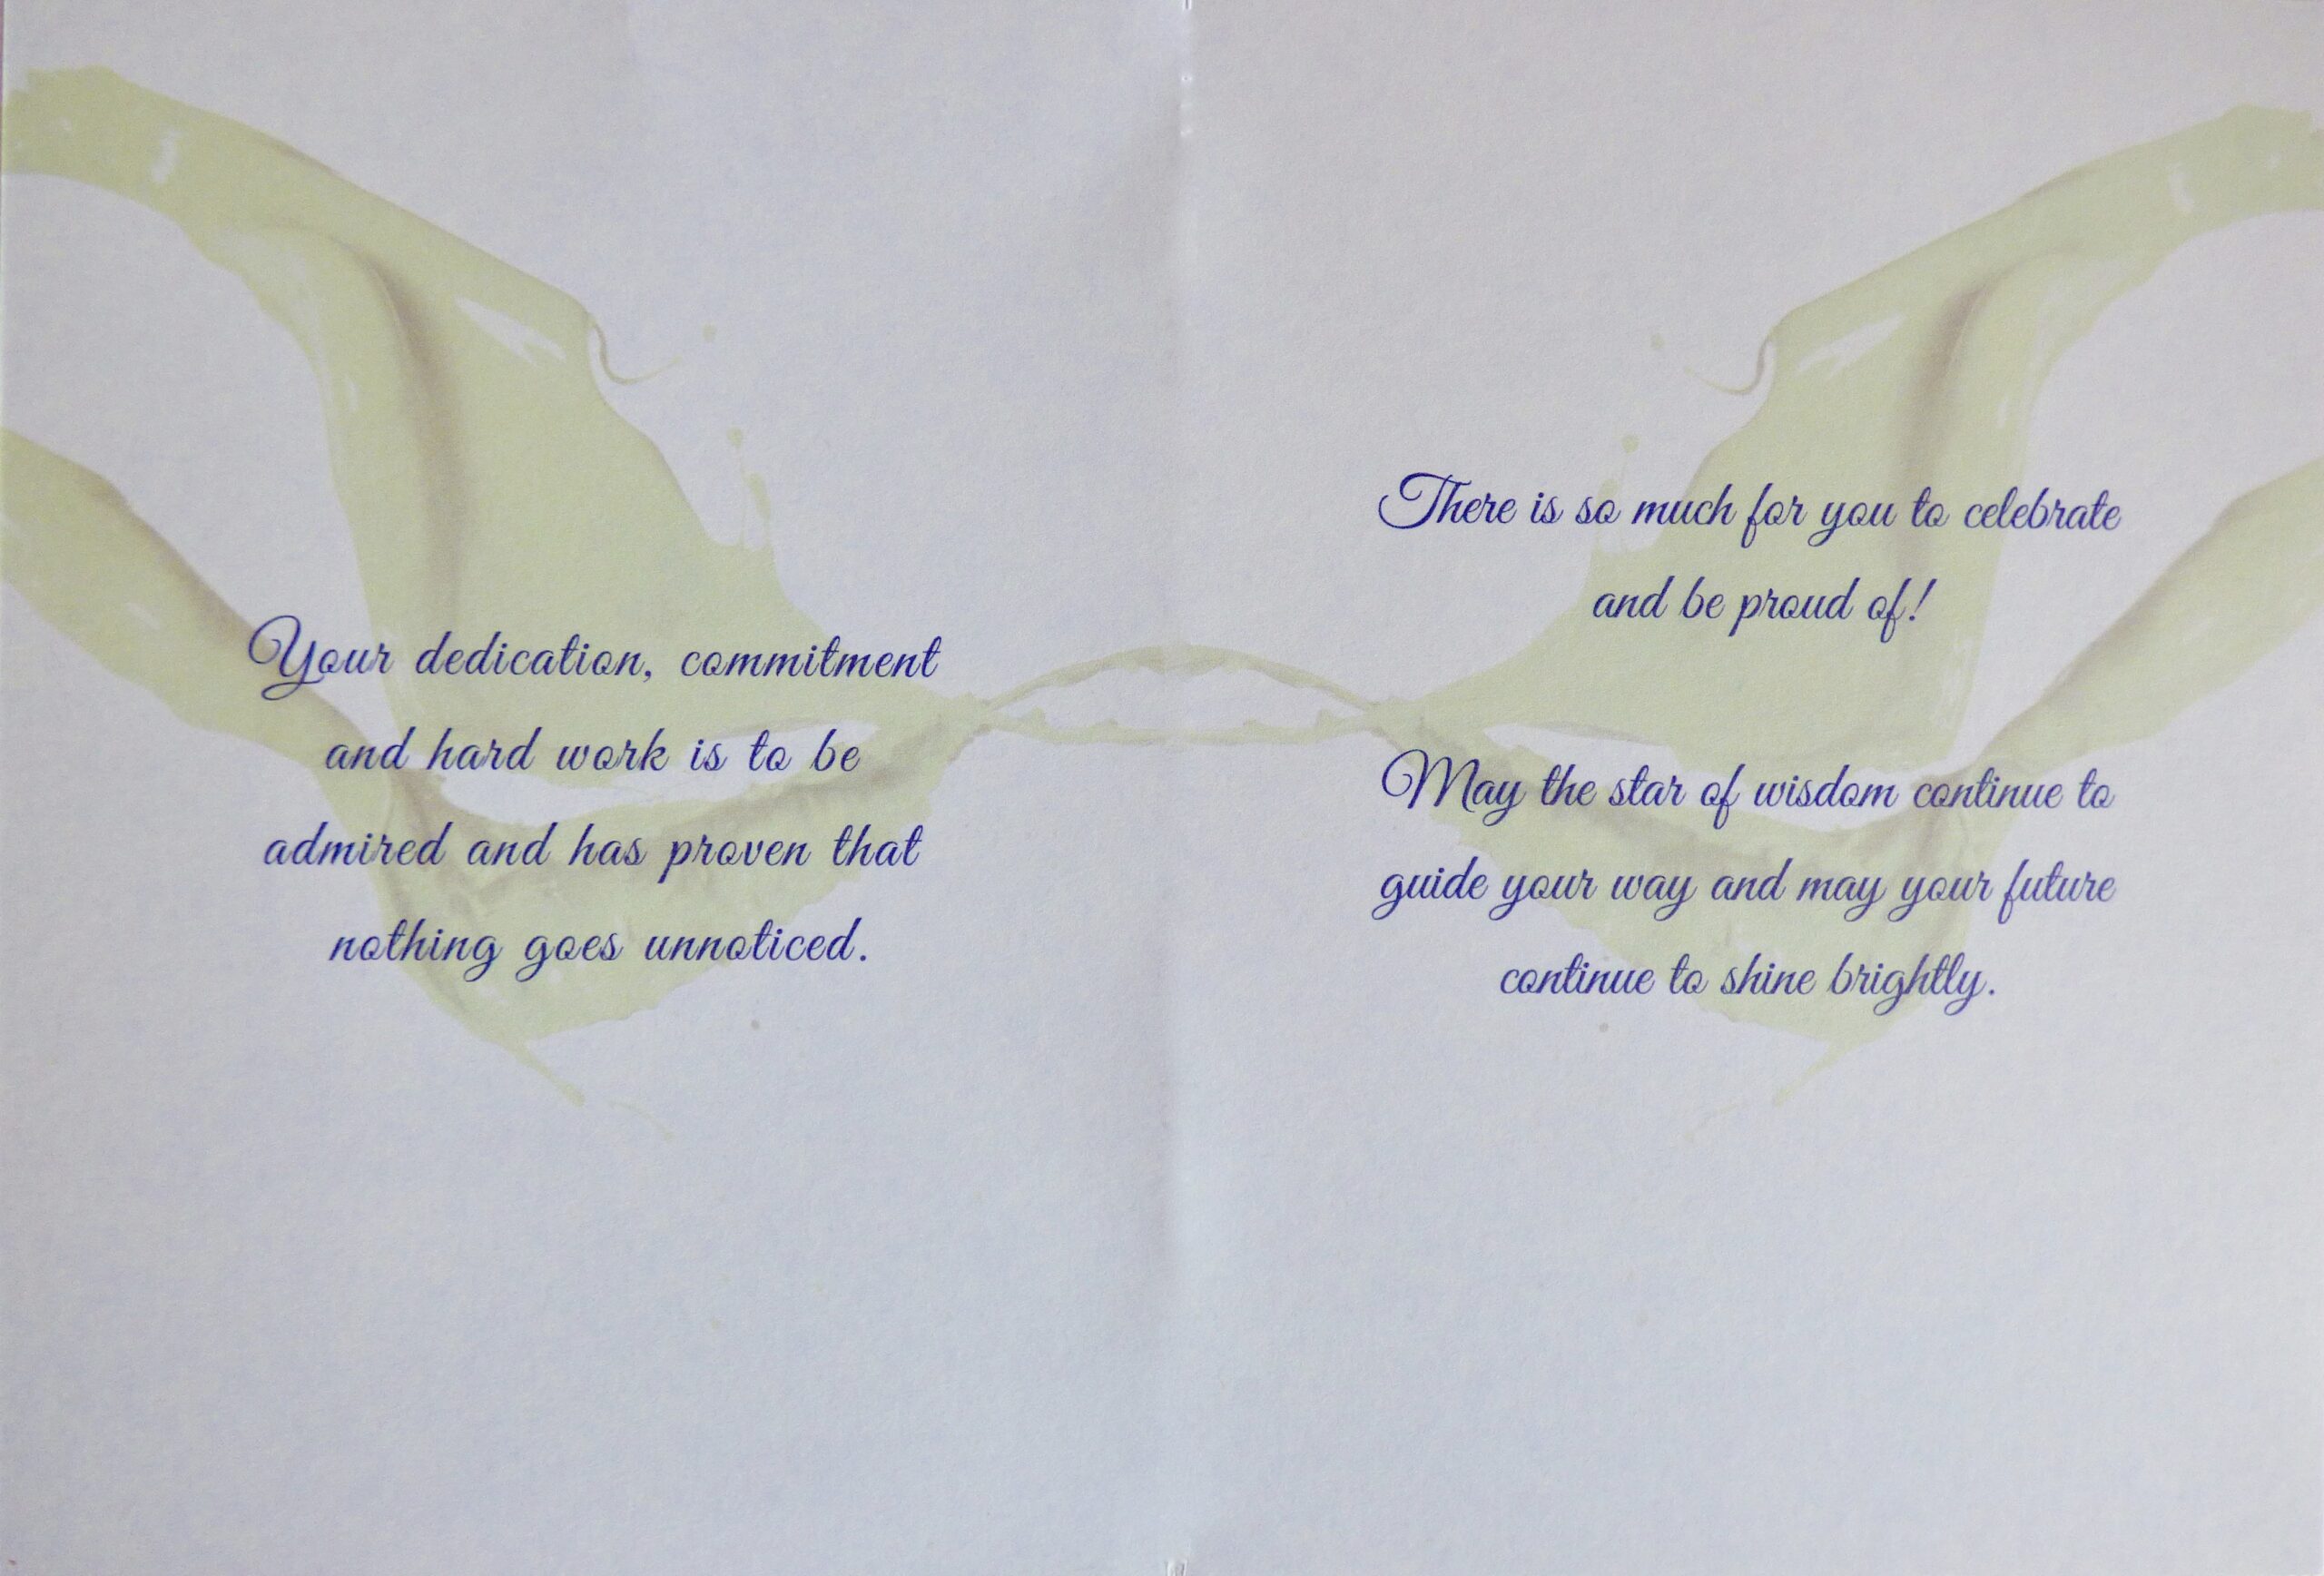 Your dedication, commitment
and hard work is to be
admired and has proven that
nothing goes unnoticed.
There is so much for you to celebrate
and be proud of!
May the star of wisdom continue to
guide your way and may your future
continue to shine brightly.